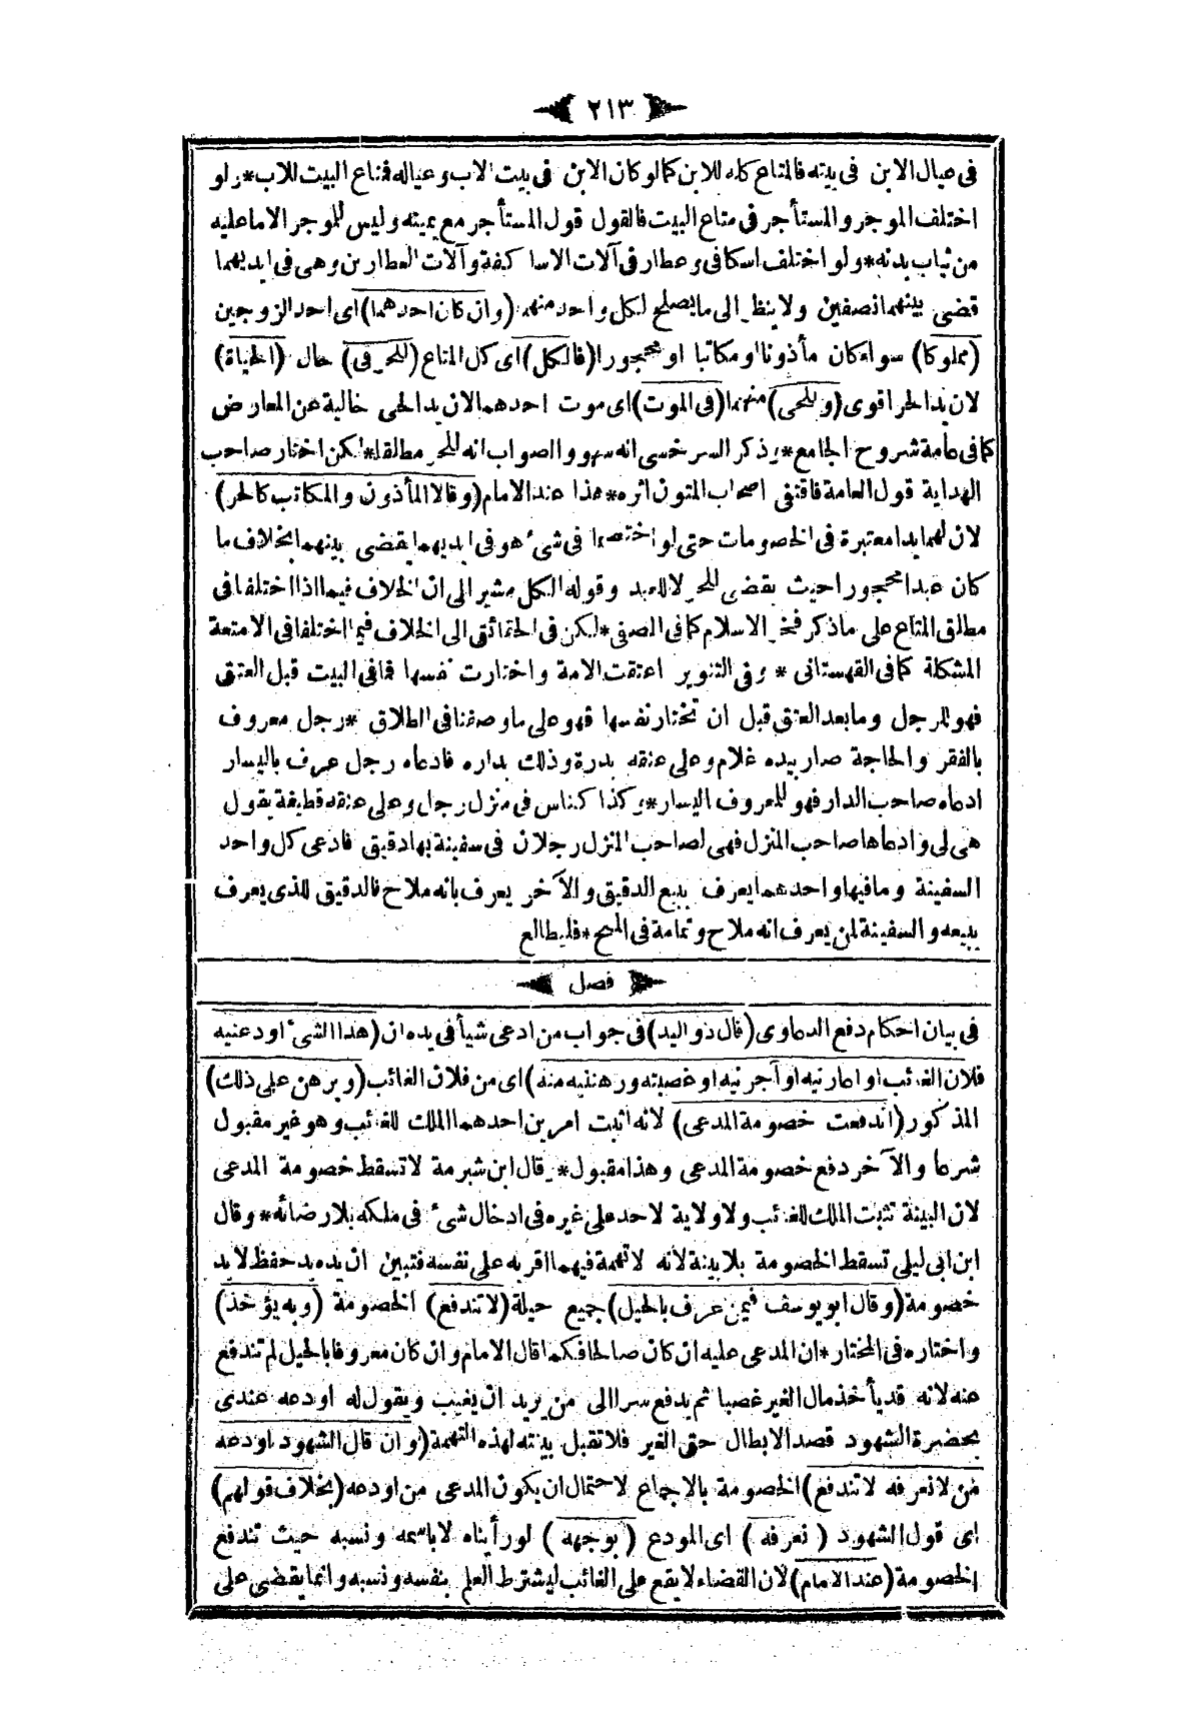 ٢١٣
فى عيال الابن فى بيته فالمتاع كله للابن كما لو كان الابن فى بيت الاب وعياله فمتاع البيت للاب * ولو
اختلف الموجر والمستأجر فى متاع البيت فالقول قول المستأجر مع يمينه وليس للموجر الا ما عليه
من ثياب بدنه * ولو اختلف اسكافى وعطار فى آلات الاساكفة وآلات العطارين وهى فى ايديهما
قضى بينهما نصفين ولا ينظر الى ما يصلح لكل واحد منهما (وان كان احدهما) اى احد الزوجين
(مملوكا) سواء كان مأذونا او مكاتبا او محجورا (فالكل) اى كل المتاع (للحر فى) حال (الحياة)
لان يد الحر اقوى (وللحى) منهما (فى الموت) اى موت احدهما لان يد الحى خالية عن المعارض
كما فى عامة شروح الجامع * وذكر السرخسى انه سهو والصواب انه للحر مطلقا * لكن اختار صاحب
الهداية قول العامة فاقتفى اصحاب المتون اثره * هذا عند الامام (وقالا المأذون والمكاتب كالحر)
لان لهما يدا معتبرة فى الخصومات حتى لو اختصما فى شئ هو فى ايديهما يقضى بينهما بخلاف ما
كان عبدا محجورا حيث يقضى للحر لا للعبد وقوله الكل مشير الى ان الخلاف فيما اذا اختلفا فى
مطلق المتاع على ما ذكر فخر الاسلام كما فى الصفى * لكن فى الحقائق الى الخلاف فيما اختلفا فى الامتعة
المشكلة كما فى القهستانى * وفى التنوير اعتقت الامة واختارت نفسها فما فى البيت قبل العتق
فهو للرجل وما بعد العتق قبل ان تختار نفسها فهو على ما وصفنا فى الطلاق * رجل معروف
بالفقر والحاجة صار بيده غلام وعلى عنقه بدرة وذلك بداره فادعاه رجل عرف باليسار
ادعاه صاحب الدار فهو للمعروف اليسار * وكذا كناس فى منزل رجل وعلى عنقه قطيفة يقول
هى لى وادعاها صاحب المنزل فهى لصاحب المنزل رجلان فى سفينة بها دقيق فادعى كل واحد
السفينة وما فيها واحدهما يعرف ببيع الدقيق والآخر يعرف بانه ملاح فالدقيق للذى يعرف
ببيعه والسفينة لمن يعرف انه ملاح وتمامة فى المنح * فليطالع
فصل
فى بيان احكام دفع الدعاوى (قال ذو اليد) فى جواب من ادعى شيأ فى يده ان (هذا الشئ اودعنيه
فلان الغائب او اعارنيه او آجرنيه او غصبته ورهننيه منه) اى من فلان الغائب (وبرهن على ذلك)
المذكور (اندفعت خصومة المدعى) لانه اثبت امرين احدهما الملك للغائب وهو غير مقبول
شرعا والآخر دفع خصومة المدعى وهذا مقبول * وقال ابن شبرمة لا تسقط خصومة المدعى
لان البينة تثبت الملك للغائب ولا ولاية لاحد على غيره فى ادخال شئ فى ملكه بلا رضائه * وقال
ابن ابى ليلى تسقط الخصومة بلا بينة لانه لا تهمة فيهما اقر به على نفسه فتبين ان يده يد حفظ لا يد
خصومة (وقال ابو يوسف فيمن عرف بالحيل) جميع حيلة (لا تندفع) الخصومة (وبه يؤخذ)
واختاره فى المختار * ان المدعى عليه ان كان صالحا فكما قال الامام وان كان معروفا بالحيل لم تندفع
عنه لانه قد يأخذ مال الغير غصبا ثم يدفع سرا الى من يريد ان يغيب ويقول له اودعه عندى
بحضرة الشهود قصد الابطال حق الغير فلا تقبل بينته لهذه التهمة (وان قال الشهود اودعه
من لا نعرفه لا تندفع) الخصومة بالاجماع لاحتمال ان يكون المدعى من اودعه (بخلاف قولهم)
اى قول الشهود (نعرفه) اى المودع (بوجهه) لو رأيناه لا باسمه ونسبه حيث تندفع
الخصومة (عند الامام) لان القضاء لا يقع على الغائب ليشترط العلم بنفسه ونسبه وانما يقضى على